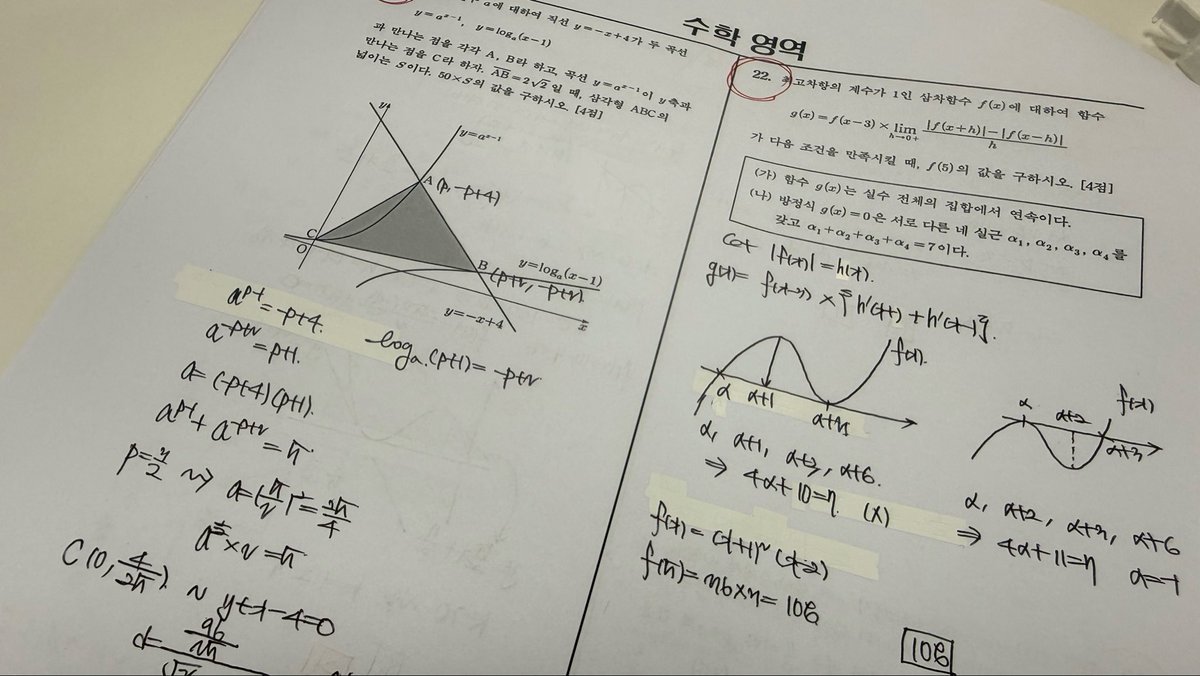 수학 영역
a에 대하여 직선 y=-x+4가 두 곡선
y=a^{x-1}, y=log_a(x-1)
과 만나는 점을 각각 A, B라 하고, 곡선 y=a^{x-1}이 y축과
만나는 점을 C라 하자. AB=2√2일 때, 삼각형 ABC의
넓이는 S이다. 50×S의 값을 구하시오. [4점]
y
y=a^{x-1}
A (p, -p+4)
C
O
B
y=log_a(x-1)
y=-x+4
x
a^{p-1}=-p+4.
=p+1.
log_a.(p+1)=
a=(-p+4)(p+1).
y+x-4=0
22. 최고차항의 계수가 1인 삼차함수 f(x)에 대하여 함수
g(x)=f(x-3)×lim_{h→0+} |f(x+h)|-|f(x-h)| / h
가 다음 조건을 만족시킬 때, f(5)의 값을 구하시오. [4점]
(가) 함수 g(x)는 실수 전체의 집합에서 연속이다.
(나) 방정식 g(x)=0은 서로 다른 네 실근 α₁, α₂, α₃, α₄를
갖고 α₁+α₂+α₃+α₄=7이다.
Let |f(x)|=h(x).
g(x)= f(x-3) × {h'(x+)+h'(x-)}.
f(x).
α
α+1
α+3
α, α+1, α+3, α+6.
⇒ 4α+10=7. (X)
α
α+2
f(x)
α+3
α, α+2, α+3, α+6
⇒ 4α+11=7 α=-1
f(x)=(x+1)²(x-2)
f(5)=36×3=108
108